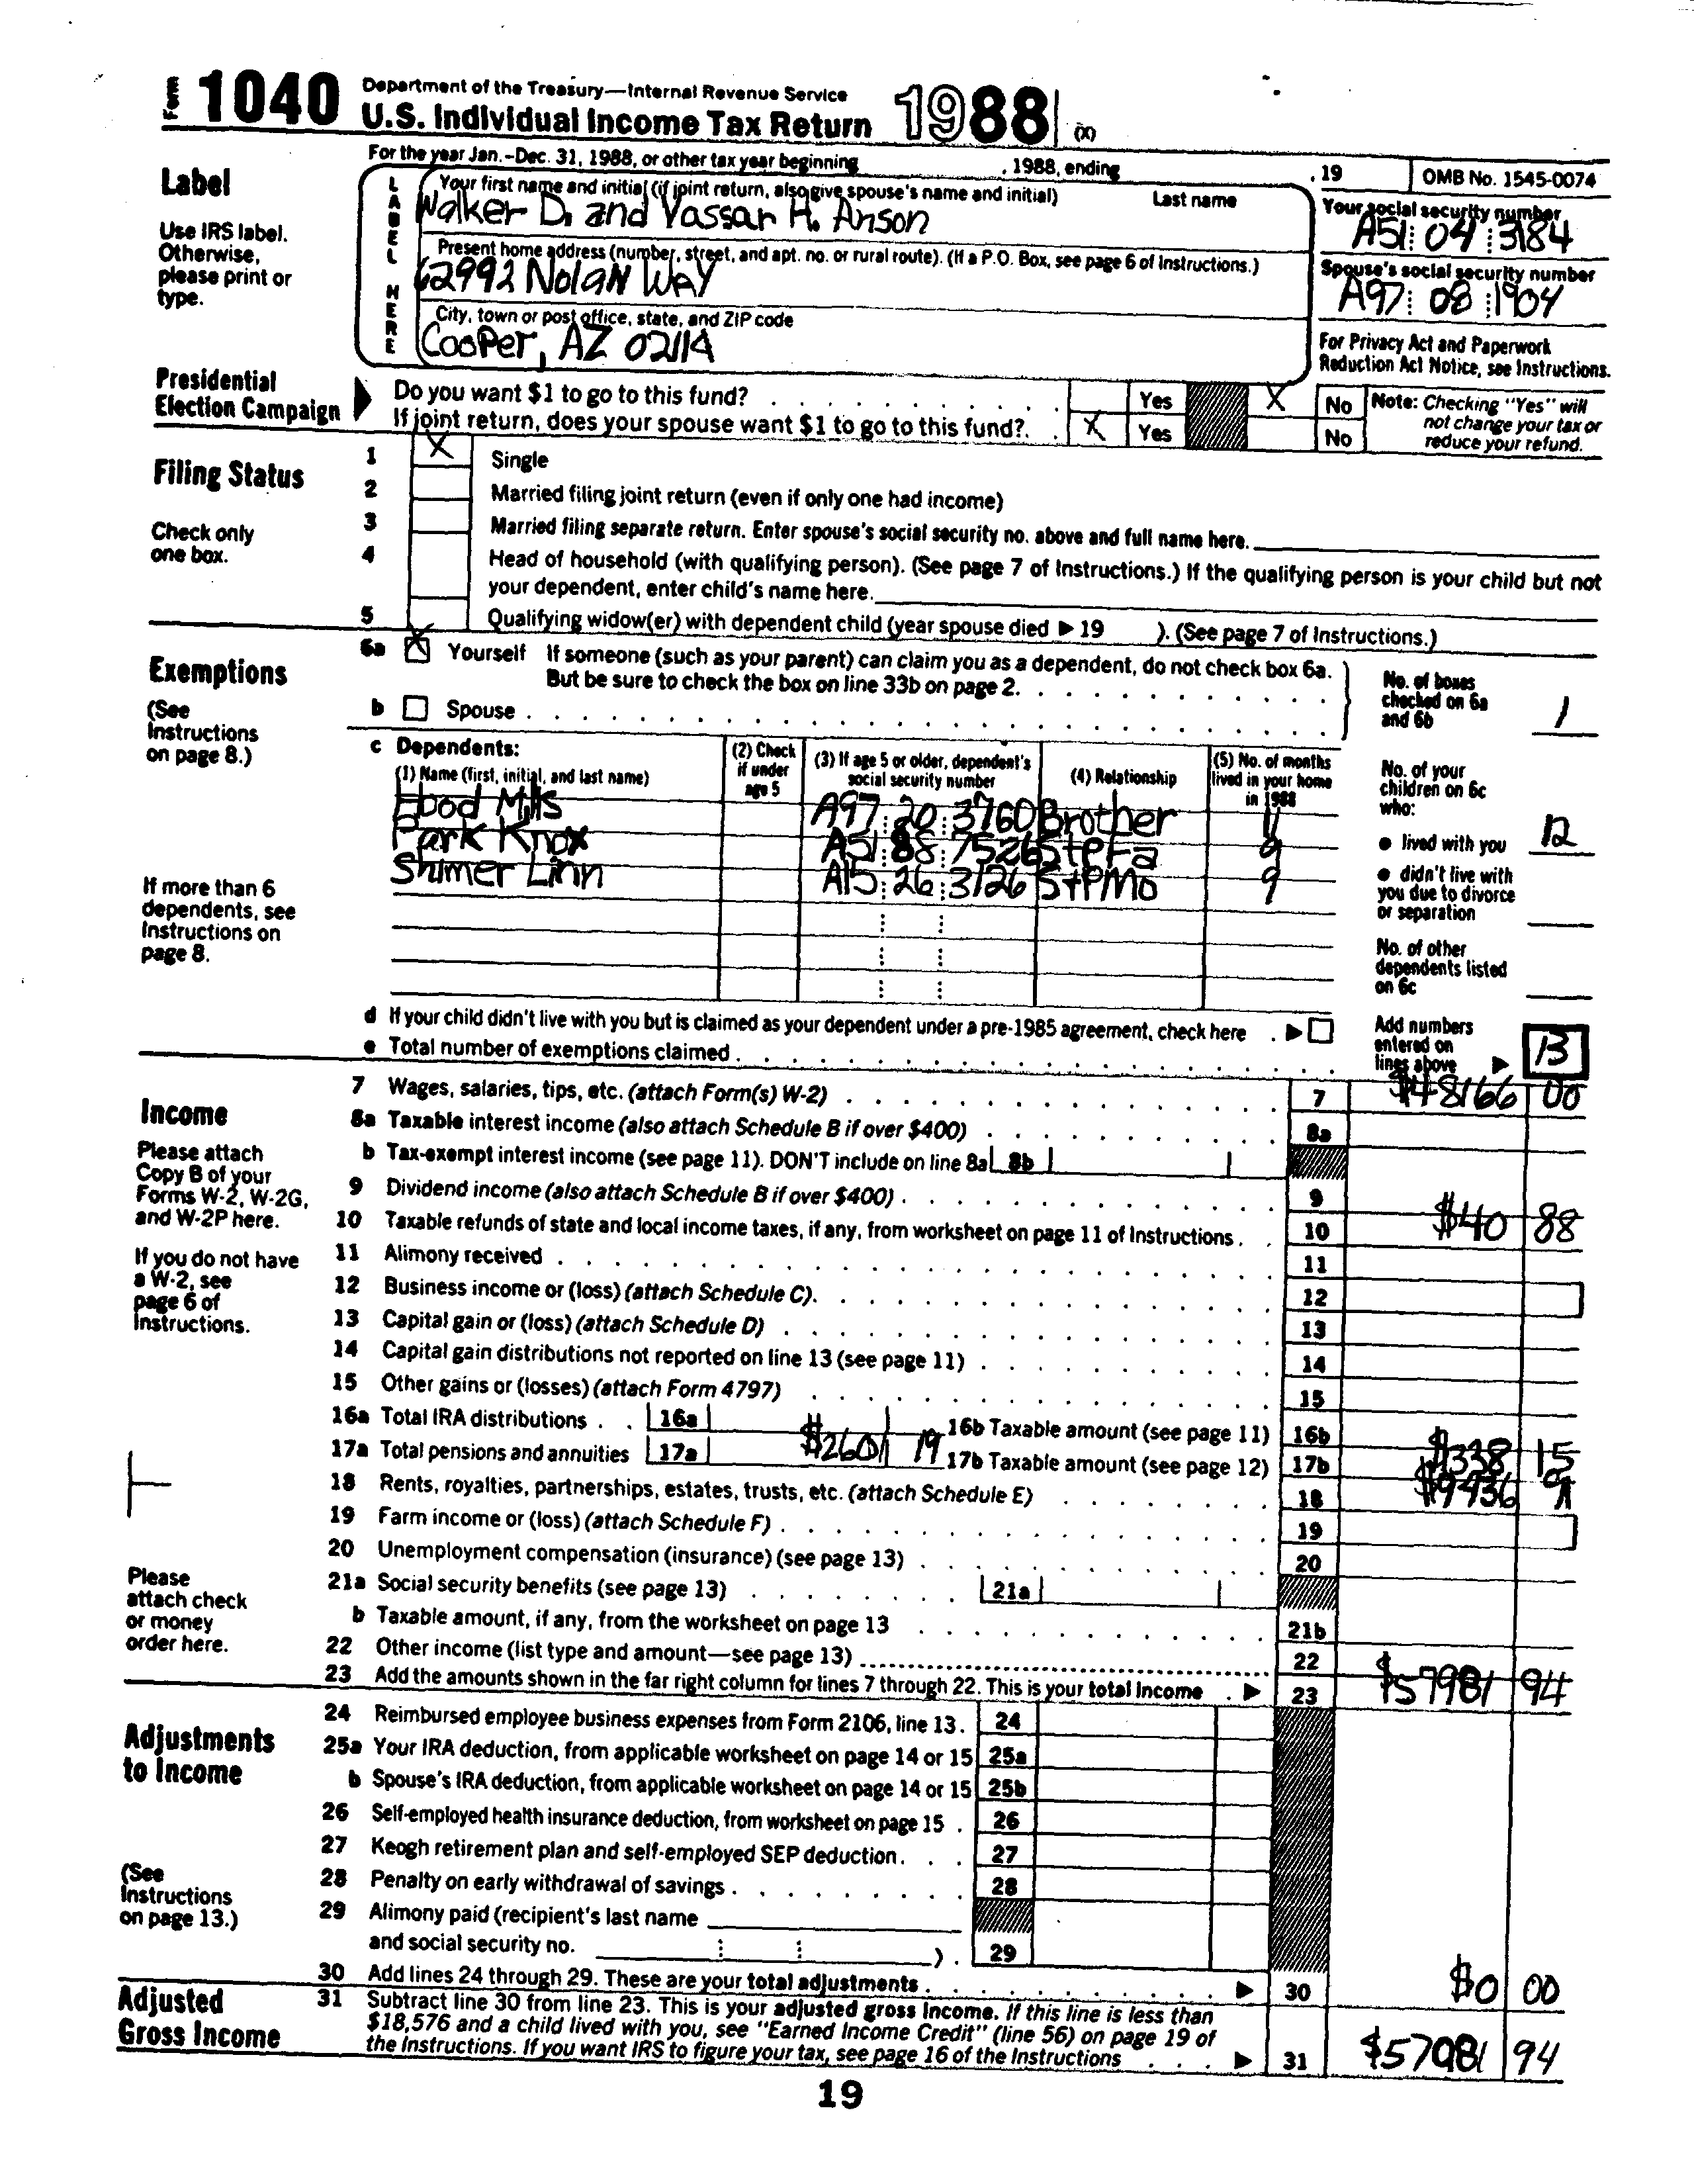 Form 1040 Department of the Treasury—Internal Revenue Service
U.S. Individual Income Tax Return 1988 (X)
For the year Jan.-Dec. 31, 1988, or other tax year beginning , 1988, ending , 19 OMB No. 1545-0074
Label
Use IRS label.
Otherwise,
please print or
type.
LABEL HERE
Your first name and initial (if joint return, also give spouse's name and initial) Last name
Walker D. and Vassar H. Anson
Your social security number
A51 04 3184
Present home address (number, street, and apt. no. or rural route). (If a P.O. Box, see page 6 of Instructions.)
62992 Nolan Way
Spouse's social security number
A97 08 1904
City, town or post office, state, and ZIP code
Cooper, AZ 02114
For Privacy Act and Paperwork
Reduction Act Notice, see Instructions.
Presidential
Election Campaign
Do you want $1 to go to this fund? Yes X No
If joint return, does your spouse want $1 to go to this fund? X Yes No
Note: Checking "Yes" will
not change your tax or
reduce your refund.
Filing Status
Check only
one box.
1 X Single
2 Married filing joint return (even if only one had income)
3 Married filing separate return. Enter spouse's social security no. above and full name here.
4 Head of household (with qualifying person). (See page 7 of Instructions.) If the qualifying person is your child but not
your dependent, enter child's name here.
5 Qualifying widow(er) with dependent child (year spouse died ▶ 19 ). (See page 7 of Instructions.)
Exemptions
(See
Instructions
on page 8.)
6a X Yourself If someone (such as your parent) can claim you as a dependent, do not check box 6a.
But be sure to check the box on line 33b on page 2.
b Spouse
No. of boxes
checked on 6a
and 6b 1
c Dependents:
(1) Name (first, initial, and last name)
(2) Check
if under
age 5
(3) If age 5 or older, dependent's
social security number
(4) Relationship
(5) No. of months
lived in your home
in 1988
Ebod Mills A97 20 3760 Brother
Park Knox A51 88 7526 StepFa
Shimer Linn A15 26 3126 StPMo 9
If more than 6
dependents, see
Instructions on
page 8.
No. of your
children on 6c
who:
● lived with you 12
● didn't live with
you due to divorce
or separation
No. of other
dependents listed
on 6c
d If your child didn't live with you but is claimed as your dependent under a pre-1985 agreement, check here ▶
e Total number of exemptions claimed
Add numbers
entered on
lines above ▶ 13
Income
Please attach
Copy B of your
Forms W-2, W-2G,
and W-2P here.
If you do not have
a W-2, see
page 6 of
Instructions.
Please
attach check
or money
order here.
7 Wages, salaries, tips, etc. (attach Form(s) W-2) 7 $48166 00
8a Taxable interest income (also attach Schedule B if over $400) 8a
b Tax-exempt interest income (see page 11). DON'T include on line 8a 8b
9 Dividend income (also attach Schedule B if over $400) 9
10 Taxable refunds of state and local income taxes, if any, from worksheet on page 11 of Instructions 10 $40 88
11 Alimony received 11
12 Business income or (loss) (attach Schedule C) 12
13 Capital gain or (loss) (attach Schedule D) 13
14 Capital gain distributions not reported on line 13 (see page 11) 14
15 Other gains or (losses) (attach Form 4797) 15
16a Total IRA distributions 16a 16b Taxable amount (see page 11) 16b
17a Total pensions and annuities 17a $2601 19 17b Taxable amount (see page 12) 17b $338 15
18 Rents, royalties, partnerships, estates, trusts, etc. (attach Schedule E) 18 $9436 91
19 Farm income or (loss) (attach Schedule F) 19
20 Unemployment compensation (insurance) (see page 13) 20
21a Social security benefits (see page 13) 21a
b Taxable amount, if any, from the worksheet on page 13 21b
22 Other income (list type and amount—see page 13) 22
23 Add the amounts shown in the far right column for lines 7 through 22. This is your total income ▶ 23 $57981 94
Adjustments
to Income
(See
Instructions
on page 13.)
24 Reimbursed employee business expenses from Form 2106, line 13. 24
25a Your IRA deduction, from applicable worksheet on page 14 or 15 25a
b Spouse's IRA deduction, from applicable worksheet on page 14 or 15 25b
26 Self-employed health insurance deduction, from worksheet on page 15 26
27 Keogh retirement plan and self-employed SEP deduction 27
28 Penalty on early withdrawal of savings 28
29 Alimony paid (recipient's last name
and social security no. ) 29
30 Add lines 24 through 29. These are your total adjustments ▶ 30 $0 00
Adjusted
Gross Income
31 Subtract line 30 from line 23. This is your adjusted gross income. If this line is less than
$18,576 and a child lived with you, see "Earned Income Credit" (line 56) on page 19 of
the Instructions. If you want IRS to figure your tax, see page 16 of the Instructions ▶ 31 $57981 94
19